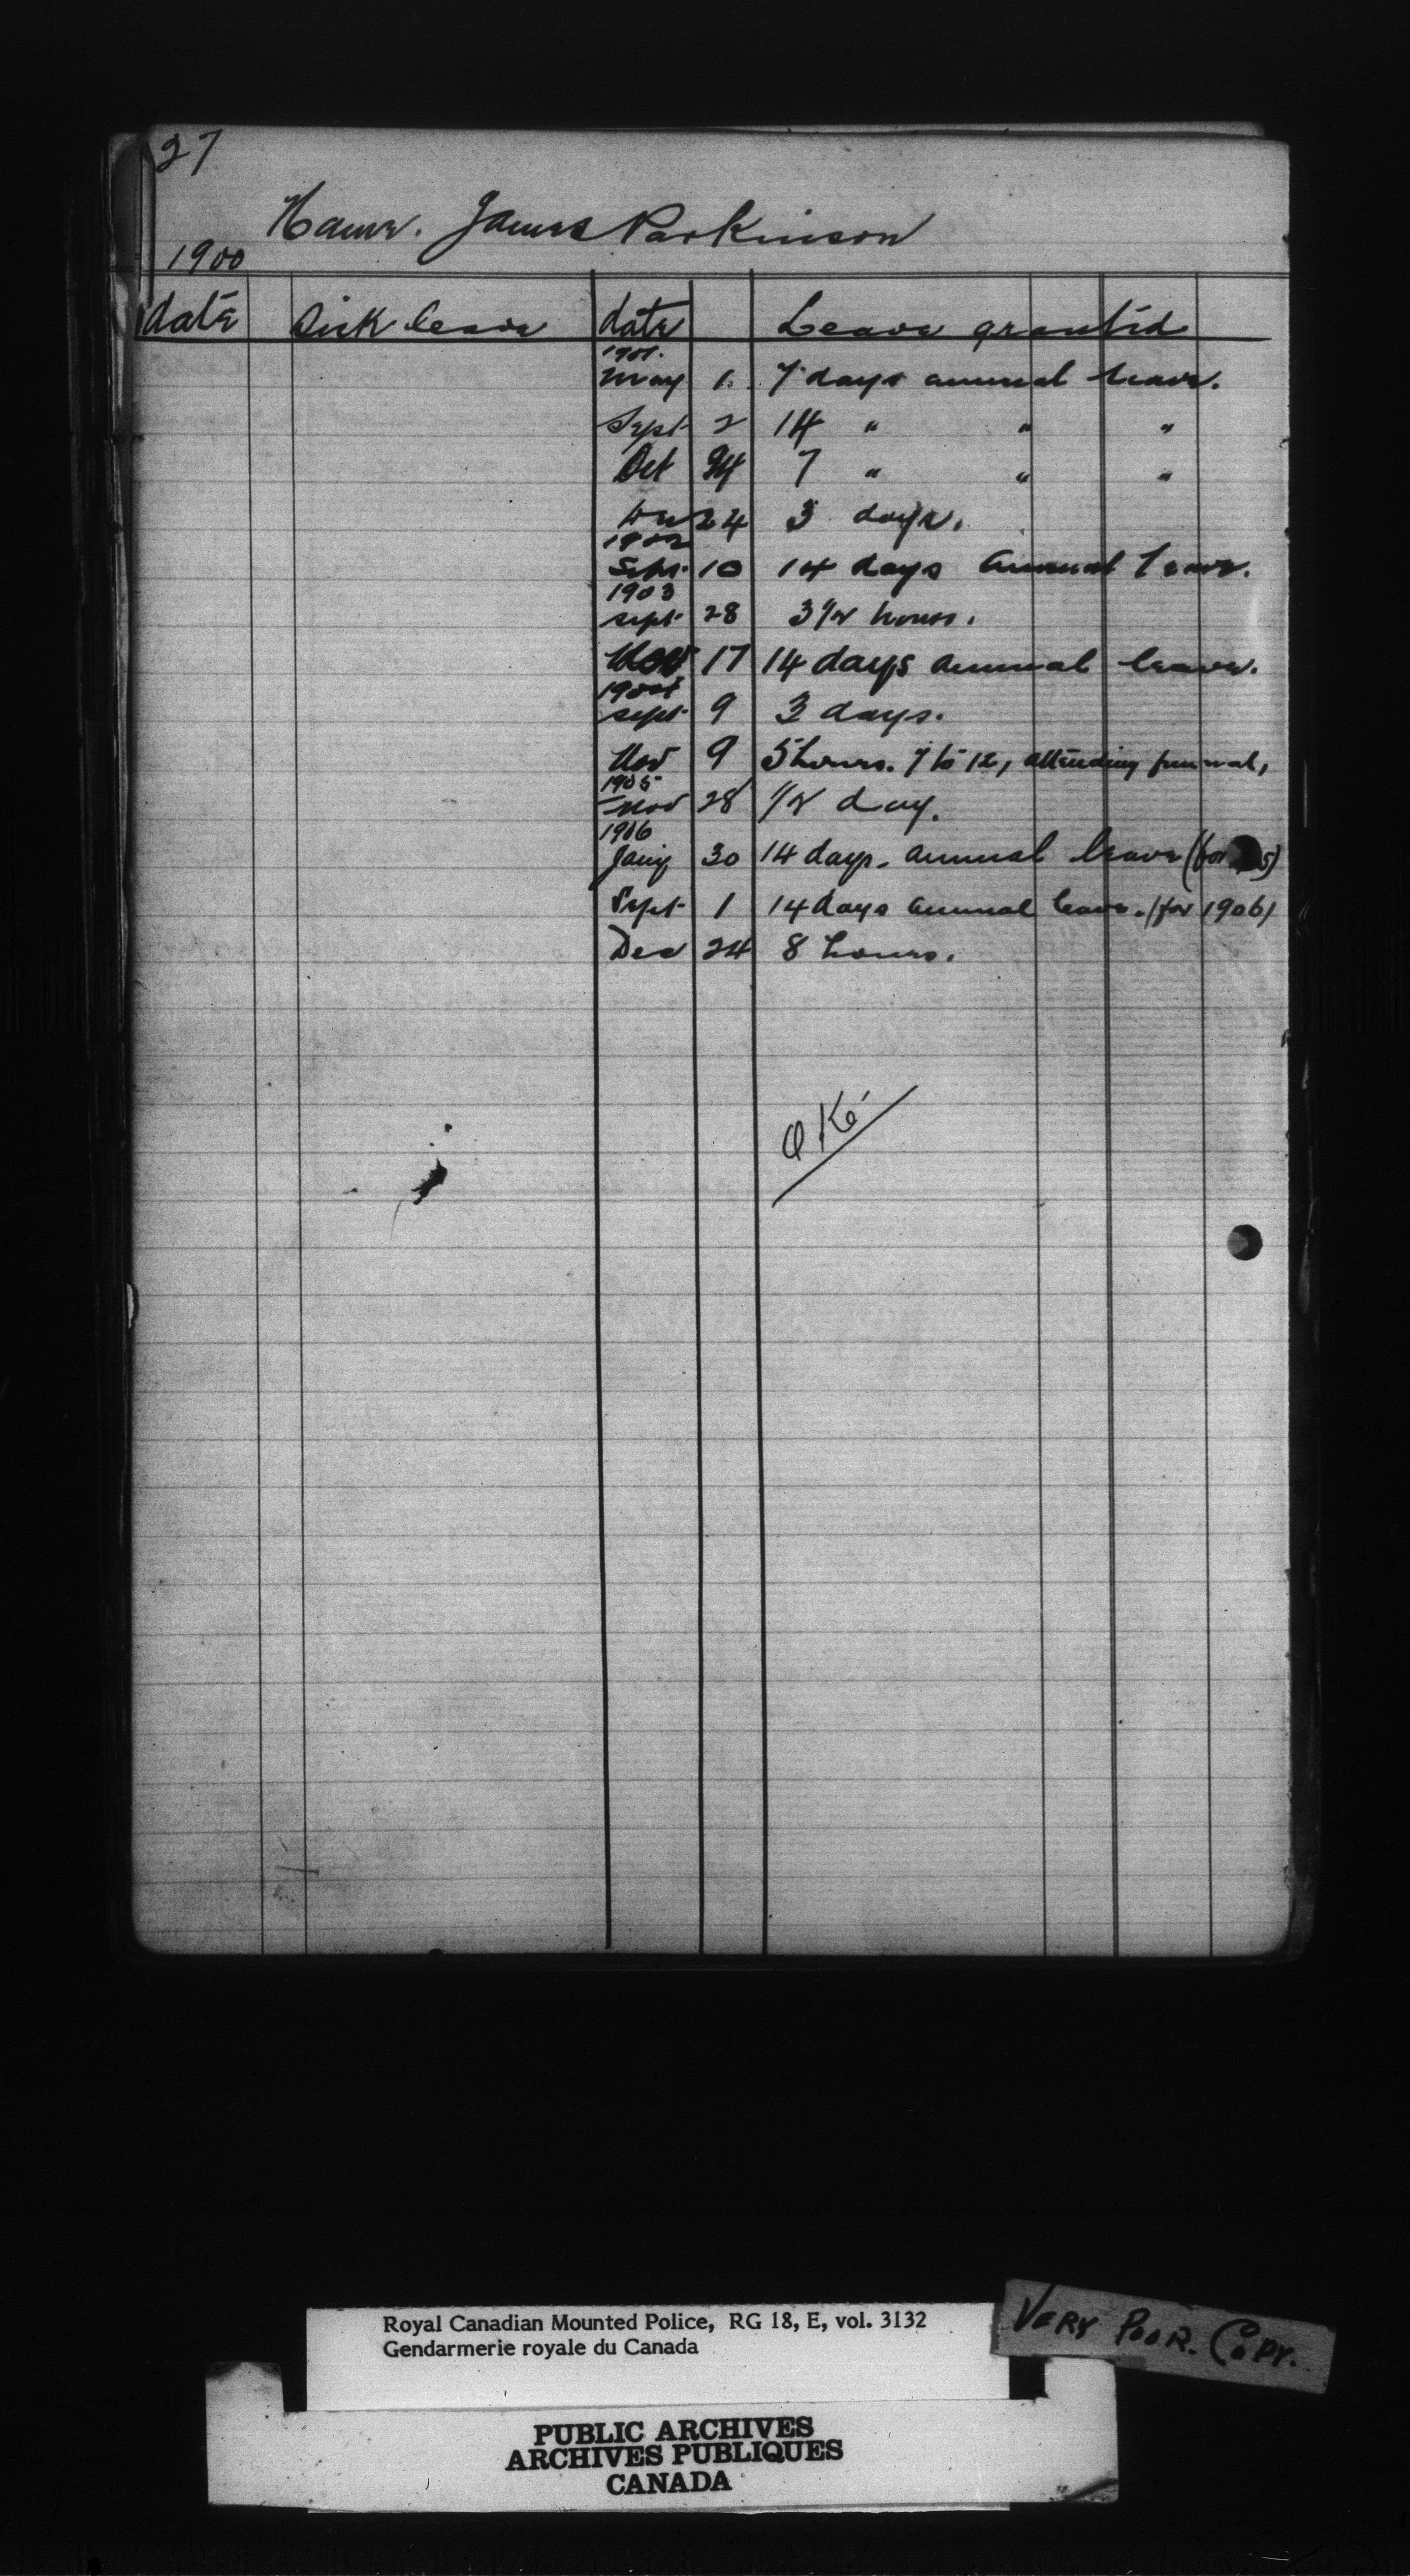 27
Name. James Parkinson
1900
date Sick leave date Leave granted
1901.
May 1. 7 days annual leave.
Sept 2 14 " " "
Oct 7 " " "
Dec 24 3 days.
1902
Sept. 10 14 days annual leave.
1903
sept 28 3 1/2 hours.
Nov 17 14 days annual leave.
1904
sept 9 3 days.
Nov 9 5 hours. 7 to 12, attending funeral,
1905
Nov 28 1/2 day.
1906
Jany 30 14 days. annual leave (for 5)
Sept 1 14 days annual leave. (for 1906)
Dec 24 8 hours.
Royal Canadian Mounted Police, RG 18, E, vol. 3132
Gendarmerie royale du Canada
VERY POOR. COPY.
PUBLIC ARCHIVES
ARCHIVES PUBLIQUES
CANADA